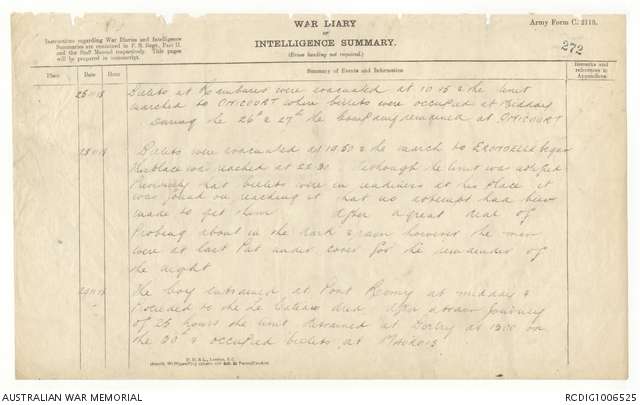 WAR DIARY
OF
INTELLIGENCE SUMMARY.
(Erase heading not required.)
Army Form C. 2118.
272
Instructions regarding War Diaries and Intelligence
Summaries are contained in F. S. Regs., Part II.
and the Staff Manual respectively. Title pages
will be prepared in manuscript.
Place Date Hour Summary of Events and Information Remarks and references to Appendices
Billets at were evacuated at 10.15 & the Unit
marched to OHICOURT where billets were occupied at Midday
During the 26th & 27th the Company remained at OHICOURT
Billets were evacuated at & the march to began
place was reached at 22.30 Although the Unit was notified
that billets were in readiness at this place it
was found on reaching it that no attempt had been
made to get them After a great deal of
probing about in the dark & rain however the men
were at last put under cover for the remainder of
the night
The Coy entrained at Pont Remy at midday &
proceeded to the Le Cateau area After a train journey
of 25 hours the Unit detrained at at 1300 on
the 30th & occupied billets at
AUSTRALIAN WAR MEMORIAL
RCDIG1006525